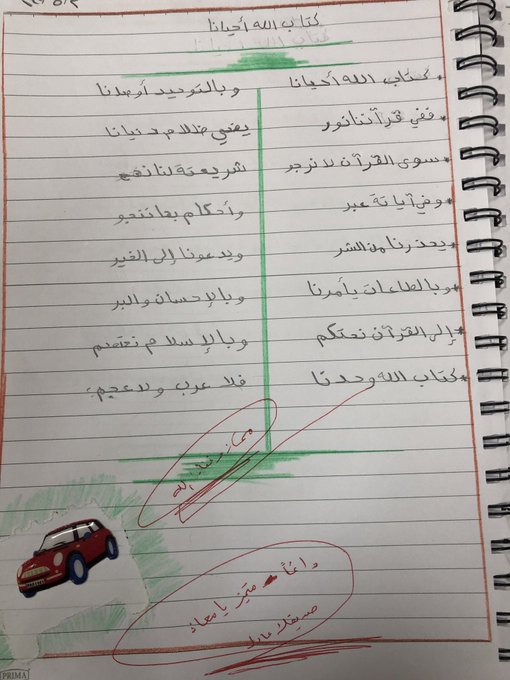 كتاب الله أحيانا
* كتاب الله أحيانا وبالتوحيد أوصانا
* ففي قرآننا نور يضيء ظلام دنيانا
* سوى القرآن لا نرجو شريعة لنا تفج
* وفي آياتة عبر وأحكام بها تنحو
* يحذرنا من الشر ويدعونا إلى الخير
* وبالطاعات يأمرنا وبالإحسان والبر
* إلى القرآن نحتكم وبالإسلام نعتصم
* كتاب الله وحدنا فلا عرب ولا عجم
دائماً متميز يا معاذ
PRIMA